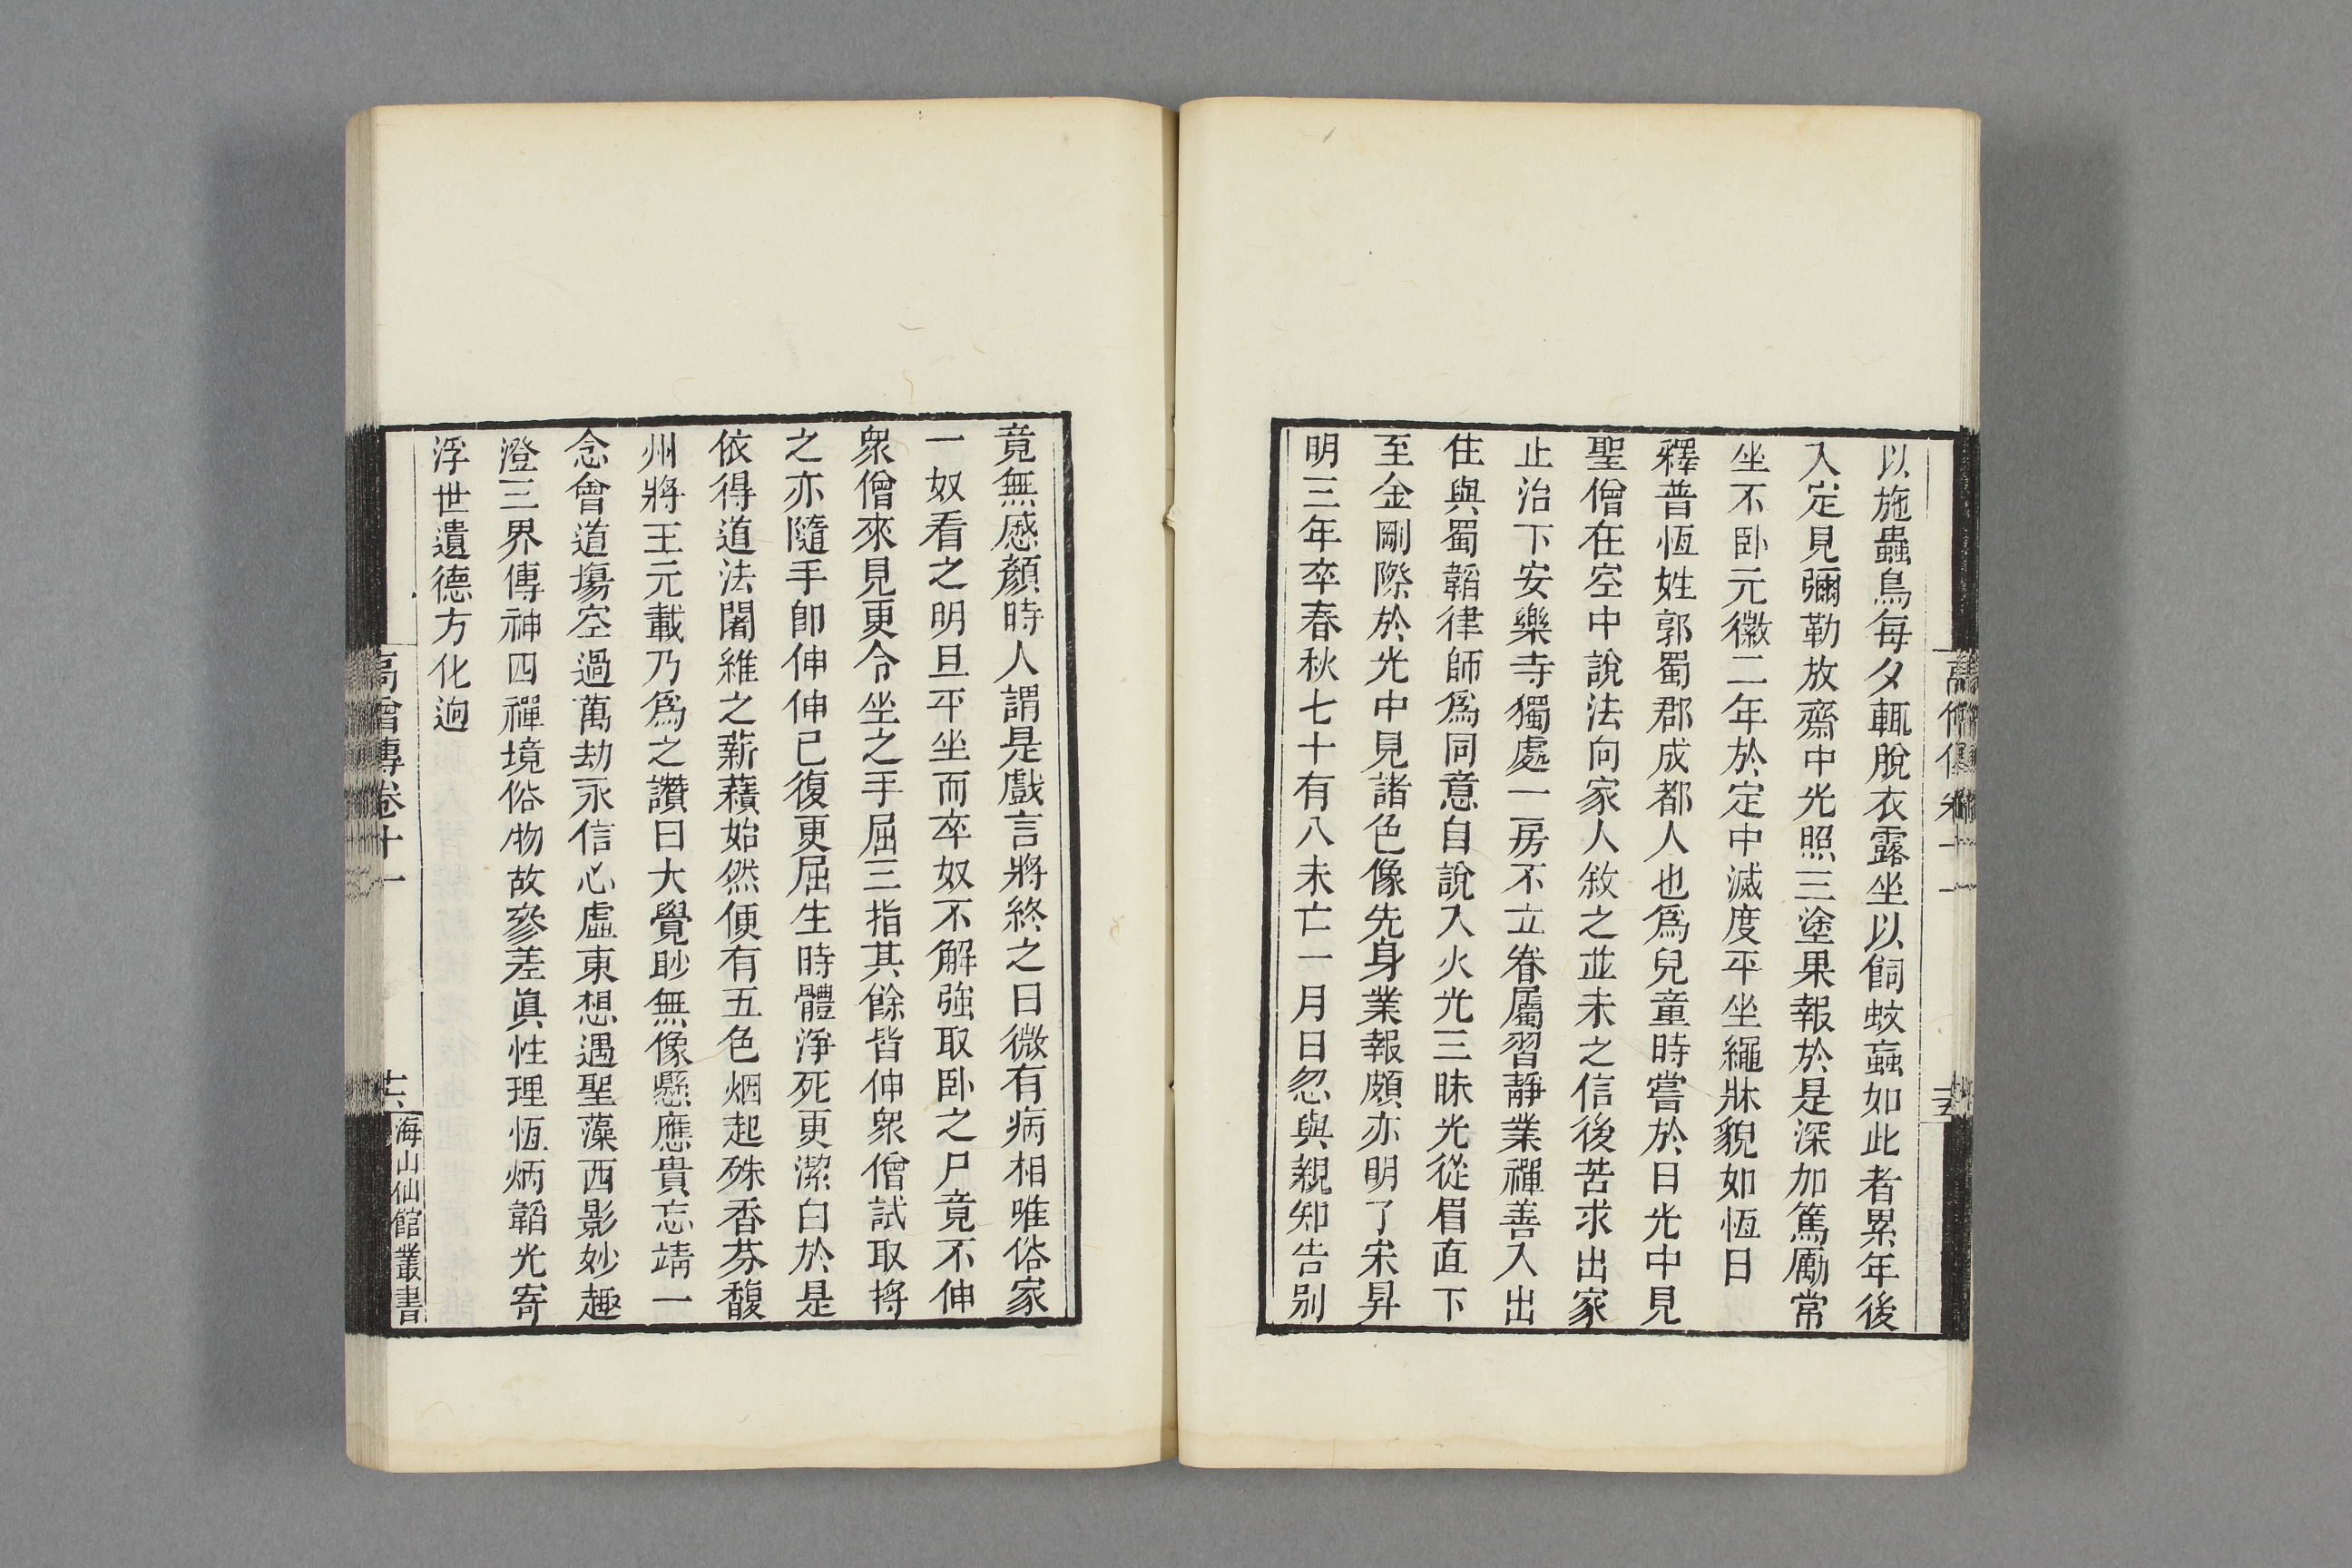 以施蟲鳥每夕輒脫衣露坐以飼蚊蝱如此者累年後
入定見彌勒放齋中光照三塗果報於是深加篤勵常
坐不卧元徽二年於定中滅度平坐繩牀貌如恆日
釋普恆姓郭蜀郡成都人也爲兒童時嘗於日光中見
聖僧在空中說法向家人敘之並未之信後苦求出家
止治下安樂寺獨處一房不立眷屬習靜業禪善入出
住與蜀韜律師爲同意自說入火光三昧光從眉直下
至金剛際於光中見諸色像先身業報頗亦明了宋昇
明三年卒春秋七十有八未亡一月日忽與親知告別
竟無慼顏時人謂是戲言將終之日微有病相唯俗家
一奴看之明旦平坐而卒奴不解強取卧之尸竟不伸
衆僧來見更令坐之手屈三指其餘皆伸衆僧試取捋
之亦隨手卽伸伸已復更屈生時體淨死更潔白於是
依得道法闍維之薪䕩始然便有五色烟起殊香芬馥
州將王元載乃爲之讚曰大覺眇無像懸應貴忘靖一
念會道塲空過萬劫永信心虛東想遇聖藻西影妙趣
澄三界傳神四禪境俗物故參差眞性理恆炳韜光寄
浮世遺德方化逈
高僧傳卷十一
十六
海山仙館叢書